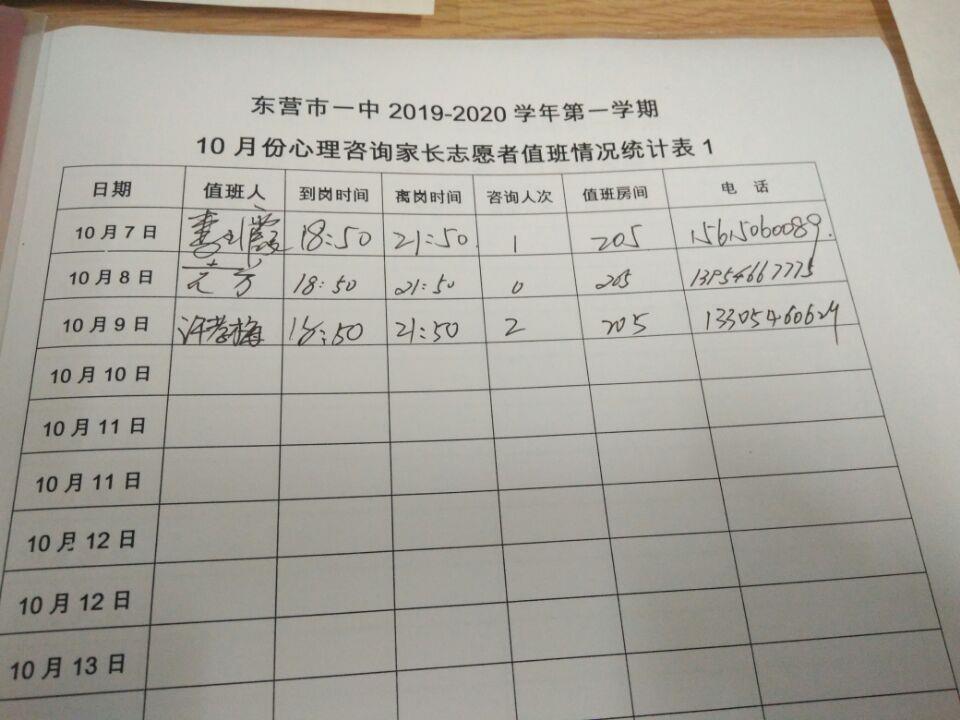 东营市一中 2019-2020 学年第一学期
10 月份心理咨询家长志愿者值班情况统计表 1
日期 值班人 到岗时间 离岗时间 咨询人次 值班房间 电 话
10 月 7 日 18:50 21:50 1 205 15615060089
10 月 8 日 18:50 21:50 0 205 13954667775
10 月 9 日 许孝梅 18:50 21:50 2 205 13305460629
10 月 10 日
10 月 11 日
10 月 11 日
10 月 12 日
10 月 12 日
10 月 13 日